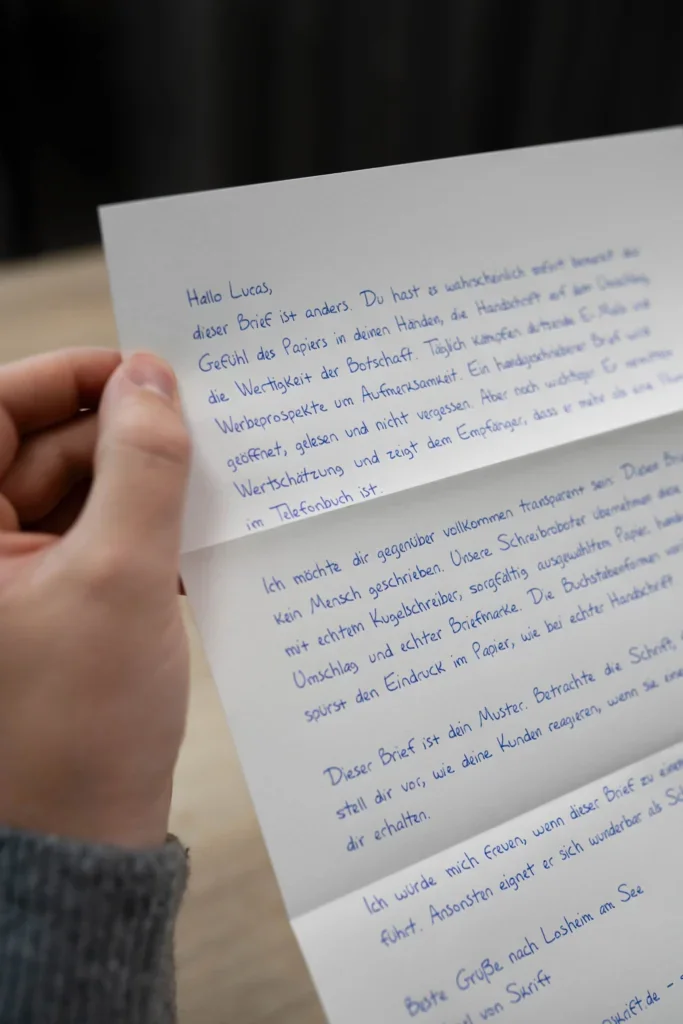 Hallo Lucas,
dieser Brief ist anders. Du hast es wahrscheinlich sofort bemerkt am
Gefühl des Papiers in deinen Händen, die Handschrift auf dem Umschlag,
die Wertigkeit der Botschaft. Täglich kämpfen dutzende E-Mails und
Werbeprospekte um Aufmerksamkeit. Ein handgeschriebener Brief wird
geöffnet, gelesen und nicht vergessen. Aber noch wichtiger: Er vermittelt
Wertschätzung und zeigt dem Empfänger, dass er mehr als eine
im Telefonbuch ist.
Ich möchte dir gegenüber vollkommen transparent sein: Diesen
kein Mensch geschrieben. Unsere Schreibroboter übernehmen diese
mit echtem Kugelschreiber, sorgfältig ausgewähltem Papier,
Umschlag und echter Briefmarke. Die Buchstabenformen
spürst den Eindruck im Papier, wie bei echter Handschrift
Dieser Brief ist dein Muster. Betrachte die Schrift,
stell dir vor, wie deine Kunden reagieren, wenn sie
dir erhalten.
Ich würde mich freuen, wenn dieser Brief zu
führt. Ansonsten eignet er sich wunderbar als
Beste Grüße nach Losheim am See
von Skrift